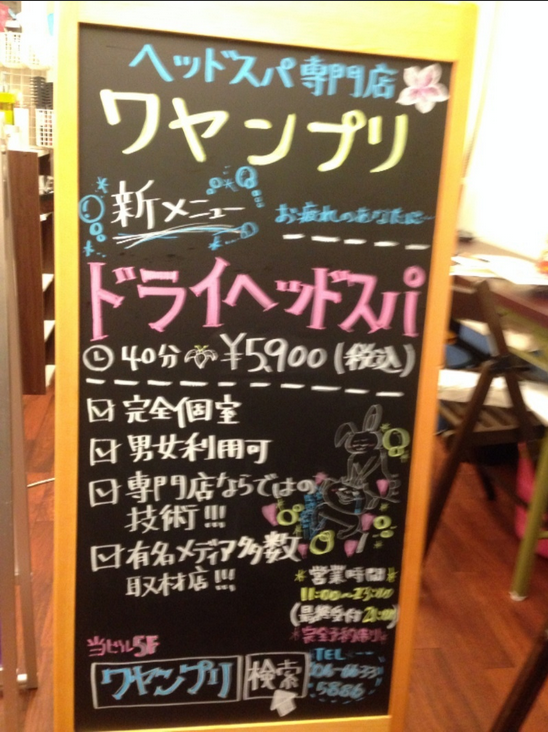 ヘッドスパ専門店
ワヤンプリ
新メニュー
お疲れのあなたに
ドライヘッドスパ
40分 ¥5,900 (税込)
完全個室
男女利用可
専門店ならではの
技術!!!
有名メディア多数
取材店!!!
営業時間
11:00~23:00
(最終受付 21:00)
完全予約制
当ビル5F
ワヤンプリ 検索
TEL
5886